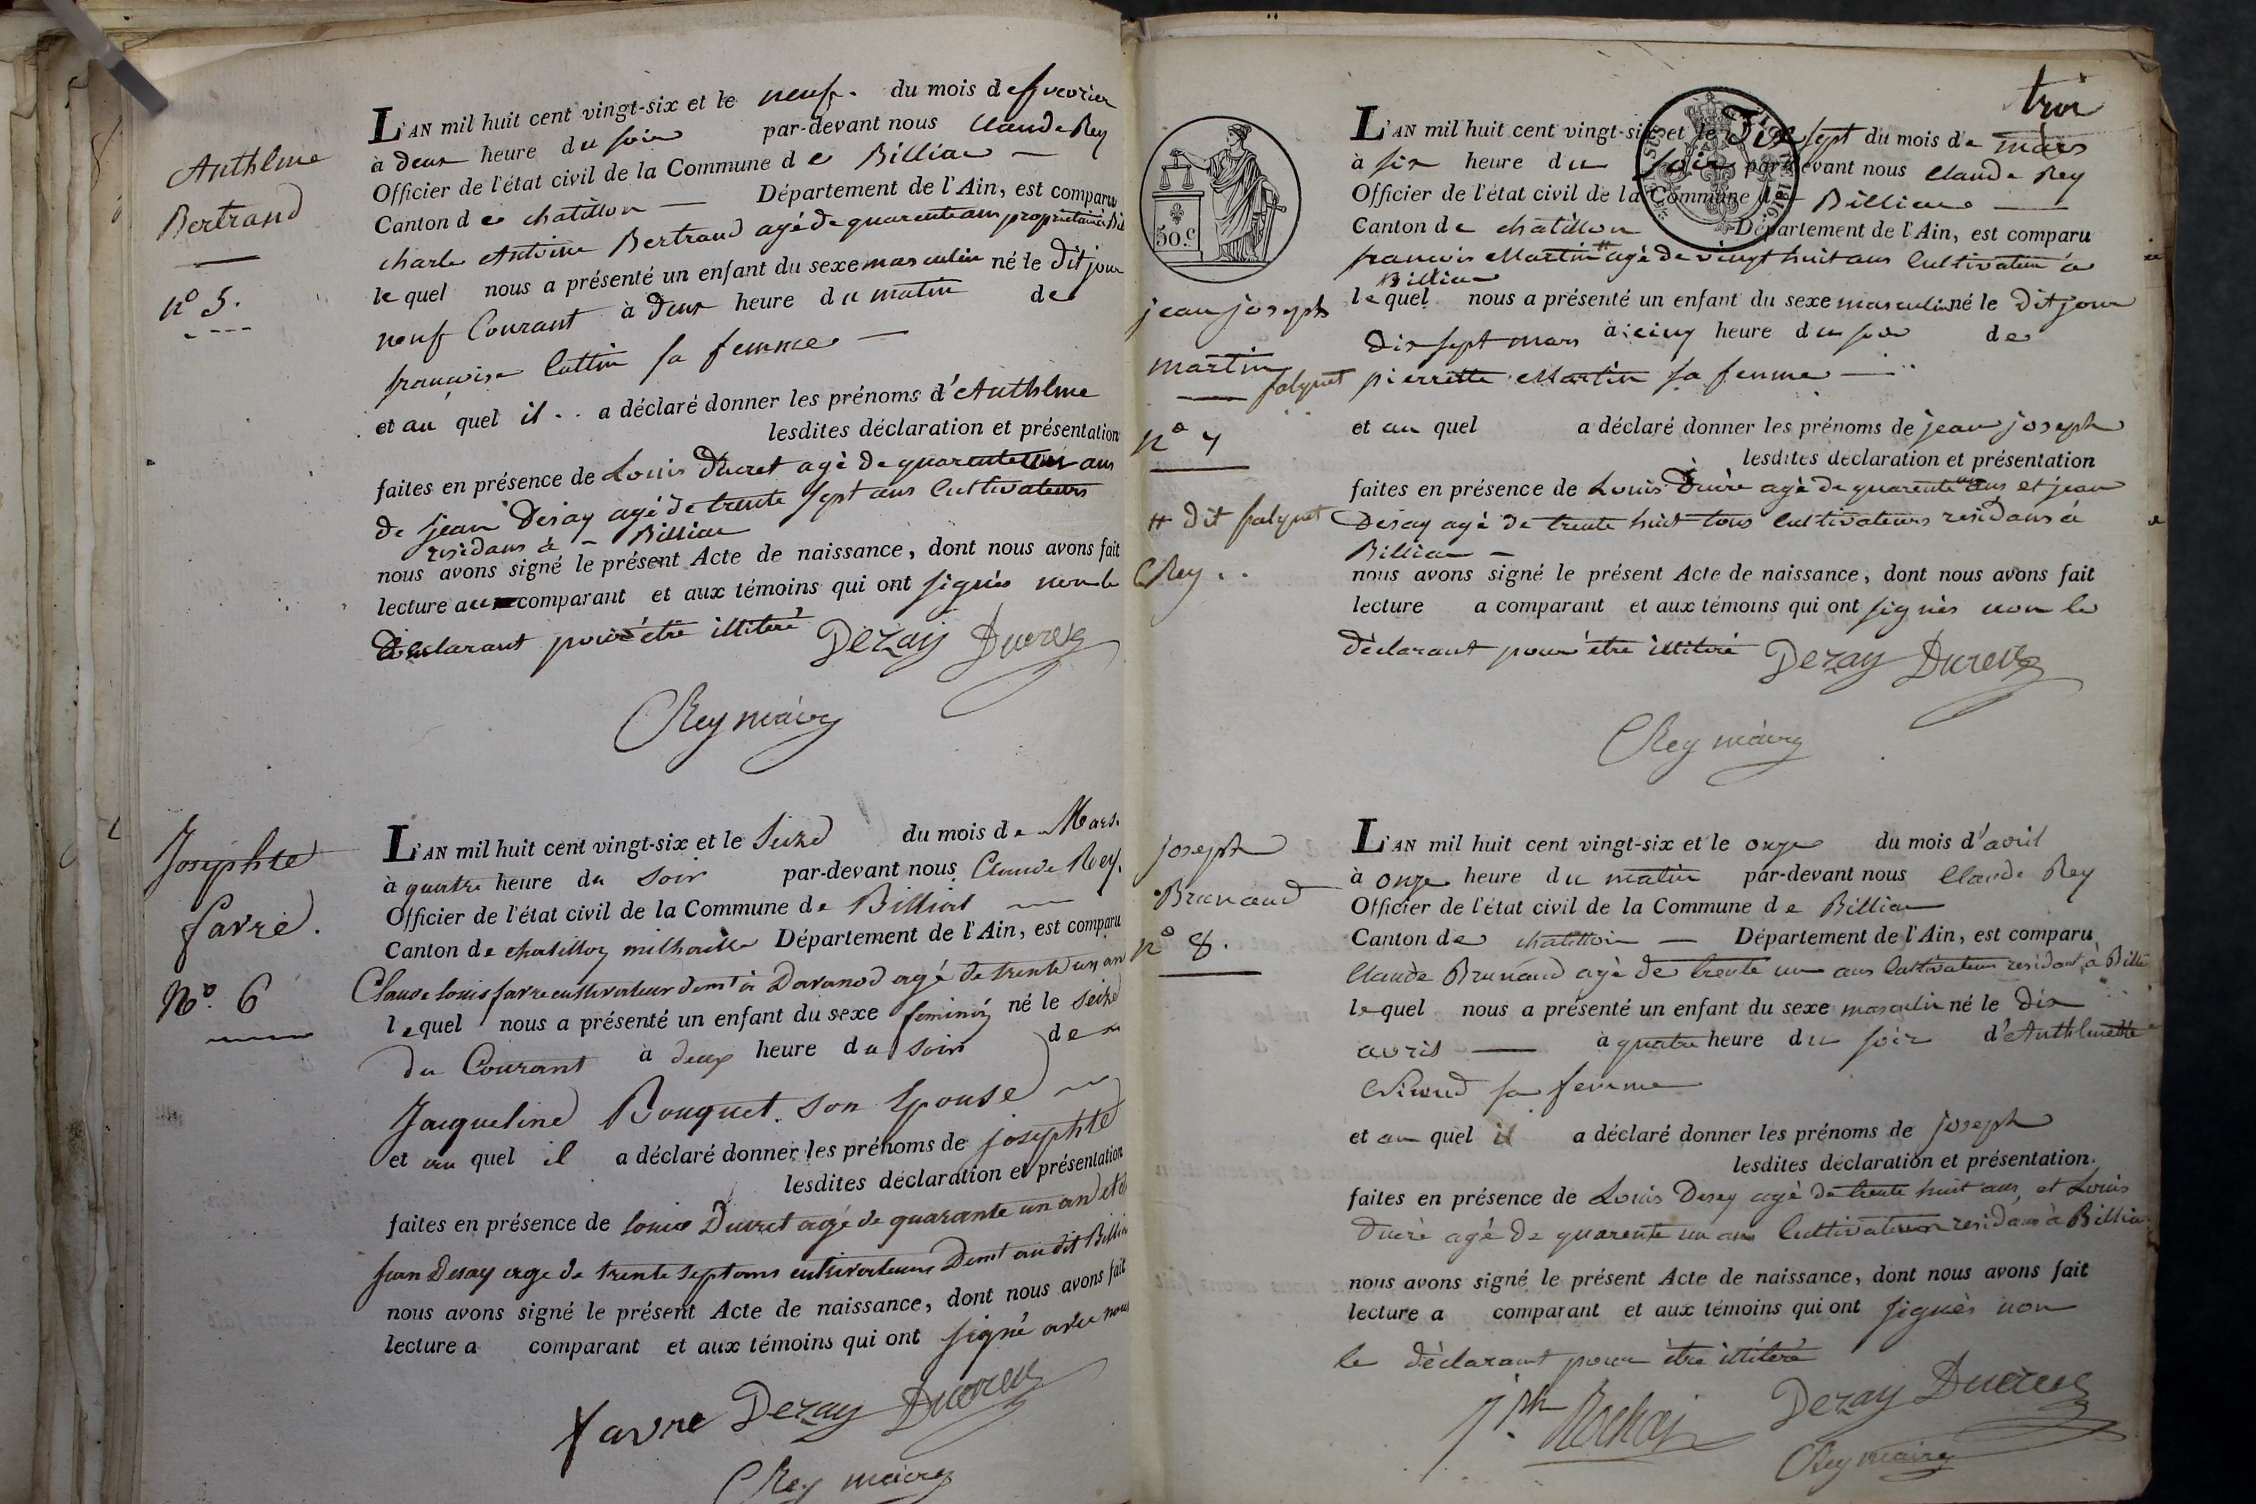 Anthlme
Bertrand
nº 5.
L'AN mil huit cent vingt-six et le neuf. du mois de fevrier
à deux heure du soir par-devant nous Claude Rey
Officier de l'état civil de la Commune de Billiat
Canton de chatillon Département de l'Ain, est comparu
charle Antoine Bertrand agé de quarente ans propriétaire à
lequel nous a présenté un enfant du sexe masculin né le dit jour
neuf Courant à deux heure du matin de
francoise Cattin sa femme
et au quel il a déclaré donner les prénoms d'Anthlme
lesdites déclaration et présentation
faites en présence de Louis Ducret agé de quarente un ans
de jean Desay agé de trente sept ans Cultivateurs
residans à Billiat
nous avons signé le présent Acte de naissance, dont nous avons fait
lecture au comparant et aux témoins qui ont signés non le
déclarant pour être illiteré Dezay Ducret
CRey maire
Josephte
favre.
Nº. 6
L'AN mil huit cent vingt-six et le Seize du mois de Mars.
à quatre heure du soir par-devant nous Claude Rey.
Officier de l'état civil de la Commune de Billiat
Canton de chatillon michaille Département de l'Ain, est comparu
Claude Louis favre cultivateur demt à Davanod agé de trente un an
lequel nous a présenté un enfant du sexe feminin né le seize
du Courant à deux heure du soir de
Jacqueline Bouquet son Epouse
et au quel il a déclaré donner les prénoms de josephte
lesdites déclaration et présentation
faites en présence de Louis Ducret agé de quarante un an et de
Jean Desay age de trente sept ans cultivateurs demt au dit Billiat
nous avons signé le présent Acte de naissance, dont nous avons fait
lecture a comparant et aux témoins qui ont signé avec nous
favre Dezay Ducret
CRey maire
troi
50.c
1816
jean joseph
martin
falquet
nº 7
# dit falquet
CRey..
L'AN mil huit cent vingt-six et le Dix sept du mois de mars
à six heure du soir par-devant nous Claude Rey
Officier de l'état civil de la Commune de Billiat
Canton de chatillon Département de l'Ain, est comparu
francois Martin # agé de vingt huit ans Cultivateur à
Billiat
lequel nous a présenté un enfant du sexe masculin né le dit jour
dix sept mars à cinq heure du soir de
pierrette Martin sa femme
et au quel a déclaré donner les prénoms de jean joseph
lesdites déclaration et présentation
faites en présence de Louis Ducre agé de quarente un ans et jean
Desay agé de trente huit tous Cultivateurs residans à
Billiat
nous avons signé le présent Acte de naissance, dont nous avons fait
lecture a comparant et aux témoins qui ont signés non le
déclarant pour être illiteré Dezay Ducret
CRey maire
joseph
Brunaud
nº 8.
L'AN mil huit cent vingt-six et le onze du mois d'avril
à onze heure du matin par-devant nous Claude Rey
Officier de l'état civil de la Commune de Billiat
Canton de chatillon Département de l'Ain, est comparu
Claude Brunaud agé de trente un ans Cultivateur residant à Billiat
lequel nous a présenté un enfant du sexe masculin né le dix
avril à quatre heure du soir d'Anthlmette
sa femme
et au quel il a déclaré donner les prénoms de joseph
lesdites déclaration et présentation.
faites en présence de Louis Desey agé de trente huit ans, et Louis
Ducré agé de quarente un ans Cultivateurs residans à Billiat
nous avons signé le présent Acte de naissance, dont nous avons fait
lecture a comparant et aux témoins qui ont signés non
le déclarant pour être illiteré
Jph Rochaj Dezay Ducret
CRey maire